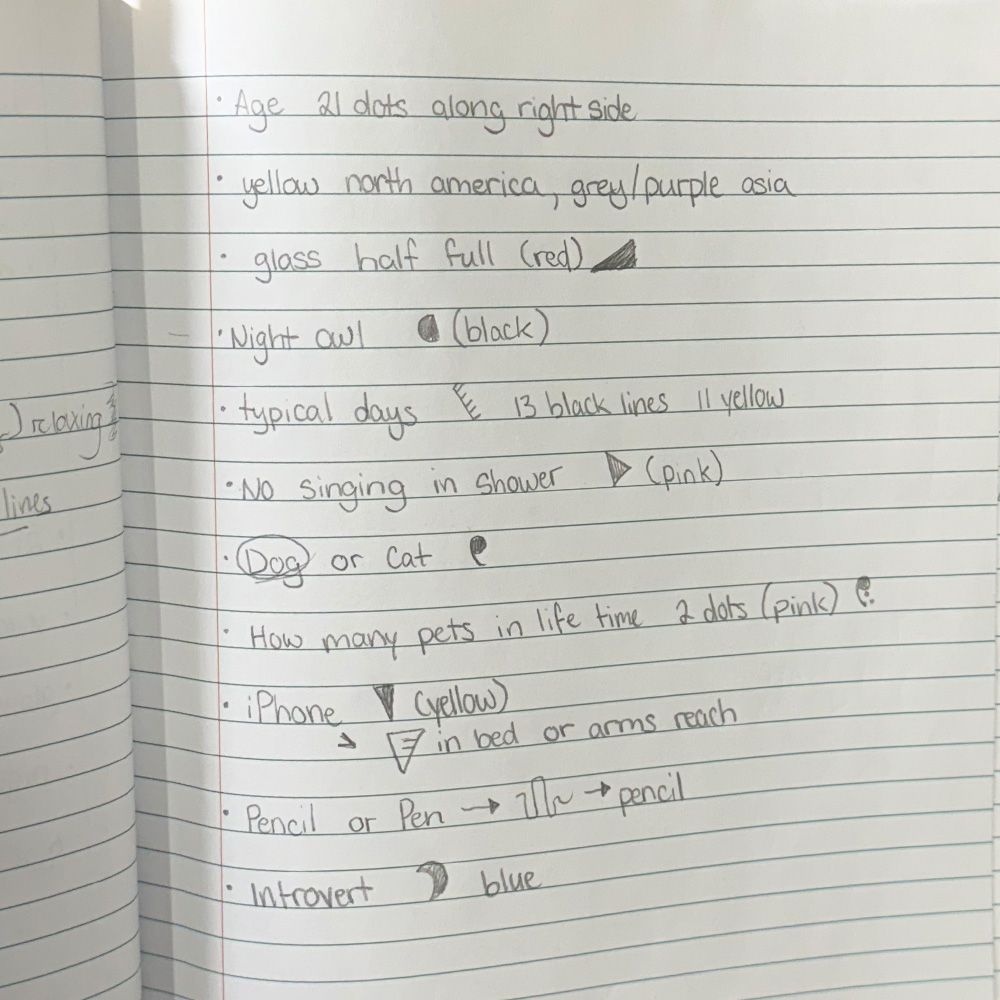 · Age 21 dots along right side
· yellow north america, grey/purple asia
· glass half full (red)
· Night owl (black)
) relaxing
· typical days 13 black lines 11 yellow
· No singing in shower (pink)
lines
· Dog or Cat
· How many pets in life time 2 dots (pink)
· iPhone (yellow)
→ in bed or arms reach
· Pencil or Pen → → pencil
· Introvert blue